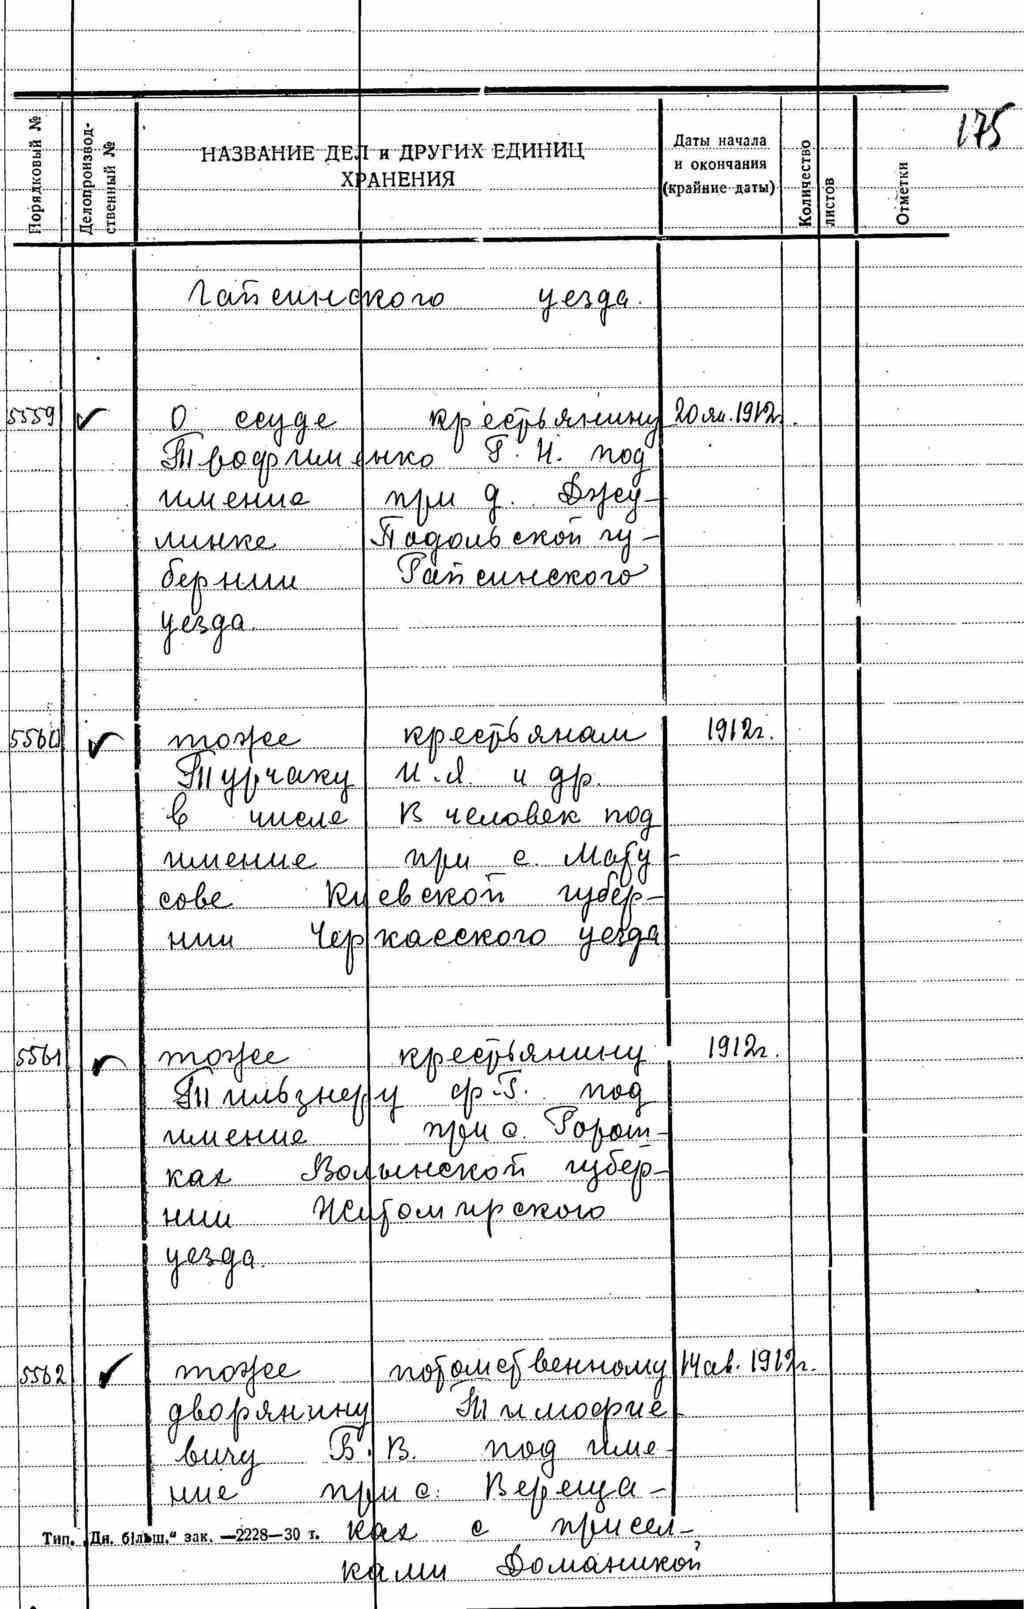 175
Порядковый №
Делопроизвод-
ственный №
НАЗВАНИЕ ДЕЛ и ДРУГИХ ЕДИНИЦ
ХРАНЕНИЯ
Даты начала
и окончания
(крайние даты)
Количество
листов
Отметки
Гайсинского уезда.
5559 О ссуде крестьянину 20 ян. 1912г.
Трофименко Г. И. под
имение при д. Джу-
линке Подольской гу-
бернии Гайсинского
уезда.
5560 тоже крестьянам 1912г.
Турчаку И. Я. и др.
в числе В человек под
имение при с. Мату-
сове Киевской губер-
нии Черкасского уезда
5561 тоже крестьянину 1912г.
Тильзнеру Ф. Г. под
имение при с. Горош-
ках Волынской губер-
нии Житомирского
уезда.
5562 тоже потомственному 14 ав. 1912г.
дворянину Тимофие-
вичу Б. В. под име-
ние при с. Вереща-
ках с присел-
ками Доманикой
Тип. „Дн. більш.“ зак. —2228—30 т.